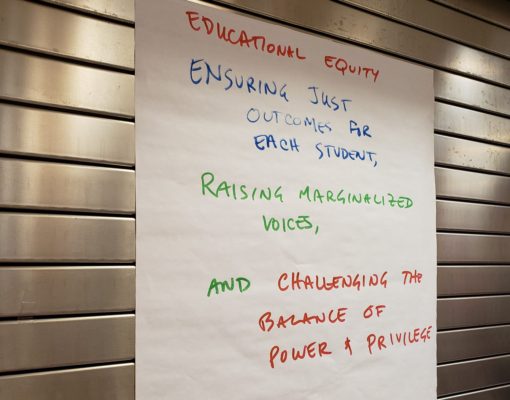 EDUCATIONAL EQUITY
ENSURING JUST
OUTCOMES FOR
EACH STUDENT,
RAISING MARGINALIZED
VOICES,
AND CHALLENGING THE
BALANCE OF
POWER & PRIVILEGE